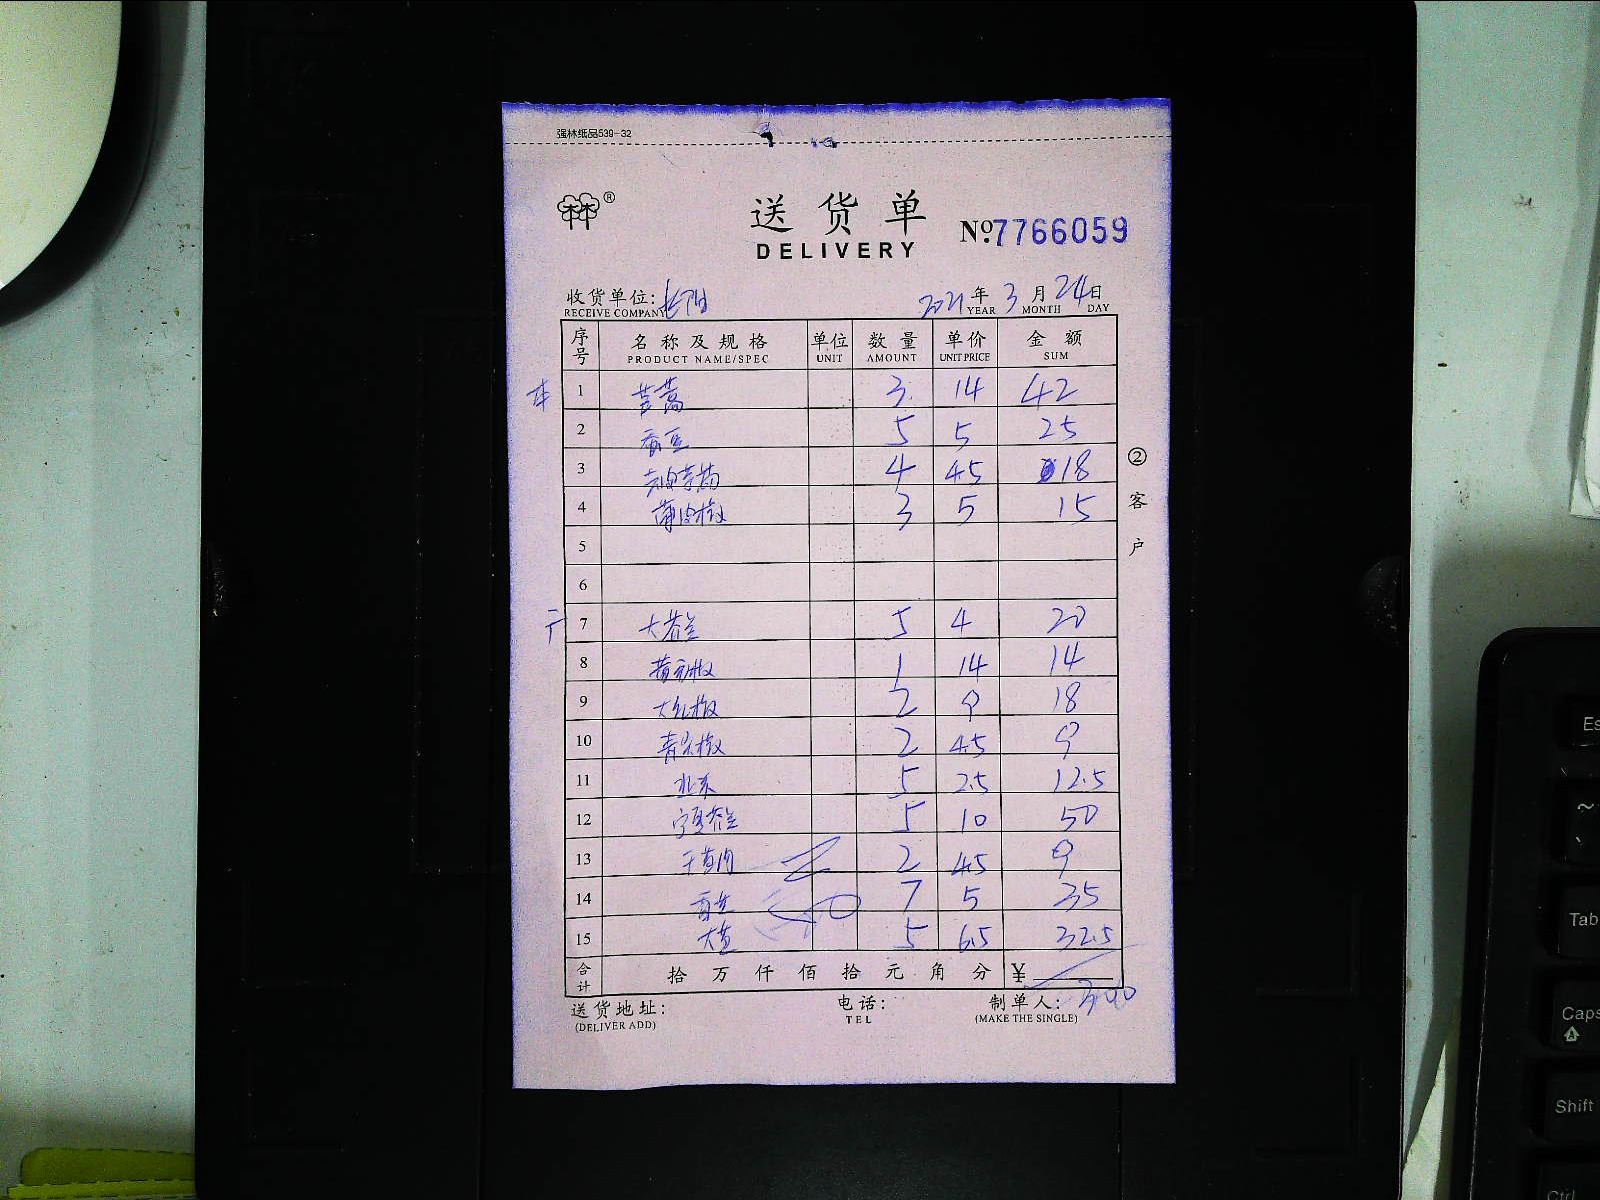 强林纸品539-32
林®
送货单
DELIVERY
No.7766059
收货单位:
RECEIVE COMPANY
2021年3月24日
YEAR MONTH DAY
序号 名称及规格 单位 数量 单价 金额
PRODUCT NAME/SPEC UNIT AMOUNT UNIT PRICE SUM
1 茼蒿 3 14 42
2 5 5 25
3 4 4.5 18
4 薄皮椒 3 5 15
5
6
7 大芥兰 5 4 20
8 黄彩椒 1 14 14
9 大红椒 2 9 18
10 青尖椒 2 4.5 9
11 北京 5 2.5 12.5
12 宁夏芥兰 5 10 50
13 2 4.5 9
14 西生 7 5 35
15 大葱 5 6.5 32.5
合计 拾万仟佰拾元角分 ¥
300
送货地址:
(DELIVER ADD)
电话:
TEL
制单人:
(MAKE THE SINGLE)
②客户
Es
~
Tab
Caps
A
Shift
Ctrl